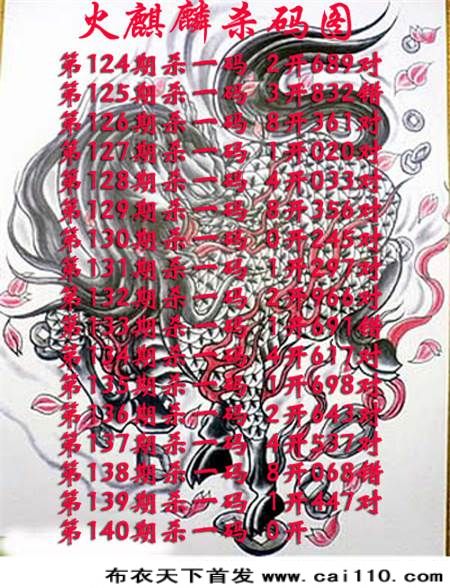 火麒麟杀码图
第124期杀一码 2开689对
第125期杀一码 3开832错
第126期杀一码 8开361对
第127期杀一码 1开020对
第128期杀一码 4开033对
第129期杀一码 8开356对
第130期杀一码 0开245对
第131期杀一码 1开297对
第132期杀一码 2开966对
第133期杀一码 1开691错
第134期杀一码 4开617对
第135期杀一码 1开698对
第136期杀一码 2开643对
第137期杀一码 4开537对
第138期杀一码 8开068错
第139期杀一码 1开447对
第140期杀一码 0开
布衣天下首发 www.cai110.com